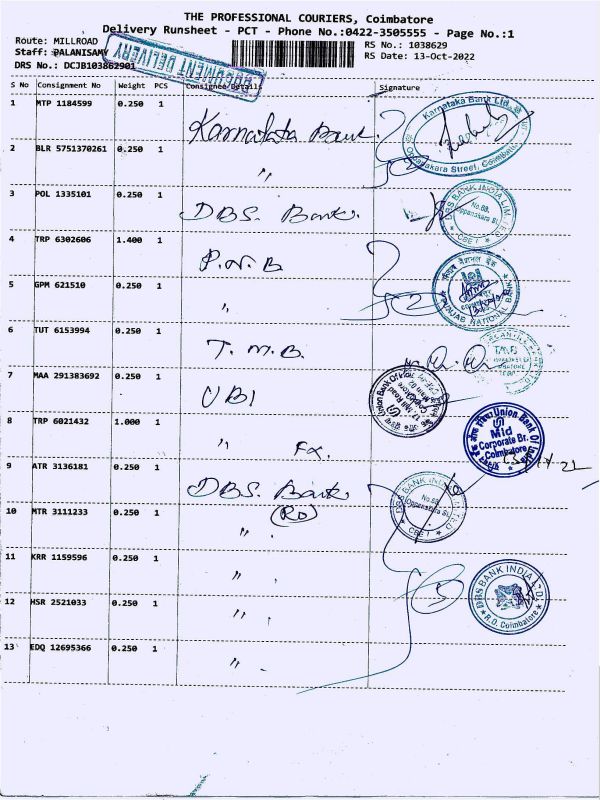 THE PROFESSIONAL COURIERS, Coimbatore
Delivery Runsheet - PCT - Phone No.:0422-3505555 - Page No.:1
Route: MILLROAD
RS No.: 1038629
Staff: PALANISAMY
RS Date: 13-Oct-2022
DRS No.: DCJB103862901
DOCUMENT DELIVERY
S No Consignment No Weight PCS Consignee Details Signature
1 MTP 1184599 0.250 1 Karnataka Bank
Karnataka Bank Ltd.
Oppanakara Street, Coimbatore
2 BLR 5751370261 0.250 1 〃
3 POL 1335101 0.250 1 DBS. Bank
DBS BANK INDIA LIMITED
No.68,
Oppanakara St.
CBE 1
4 TRP 6302606 1.400 1 P.N.B
पंजाब नैशनल बैंक
PUNJAB NATIONAL BANK
5 GPM 621510 0.250 1 〃
6 TUT 6153994 0.250 1 T.M.B.
TMB
7 MAA 291383692 0.250 1 UBI
Union Bank Of India
Coimbatore
8 TRP 6021432 1.000 1 〃 Fx.
Union Bank Of India
Mid
Corporate Br.
Coimbatore
9 ATR 3136181 0.250 1 DBS. Bank
DBS BANK INDIA LIMITED
No.68,
Oppanakara St.
CBE 1
10 MTR 3111233 0.250 1 〃 (RD)
11 KRR 1159596 0.250 1 〃
DBS BANK INDIA LTD
R.D. Coimbatore
12 HSR 2521033 0.250 1 〃
13 EDQ 12695366 0.250 1 〃